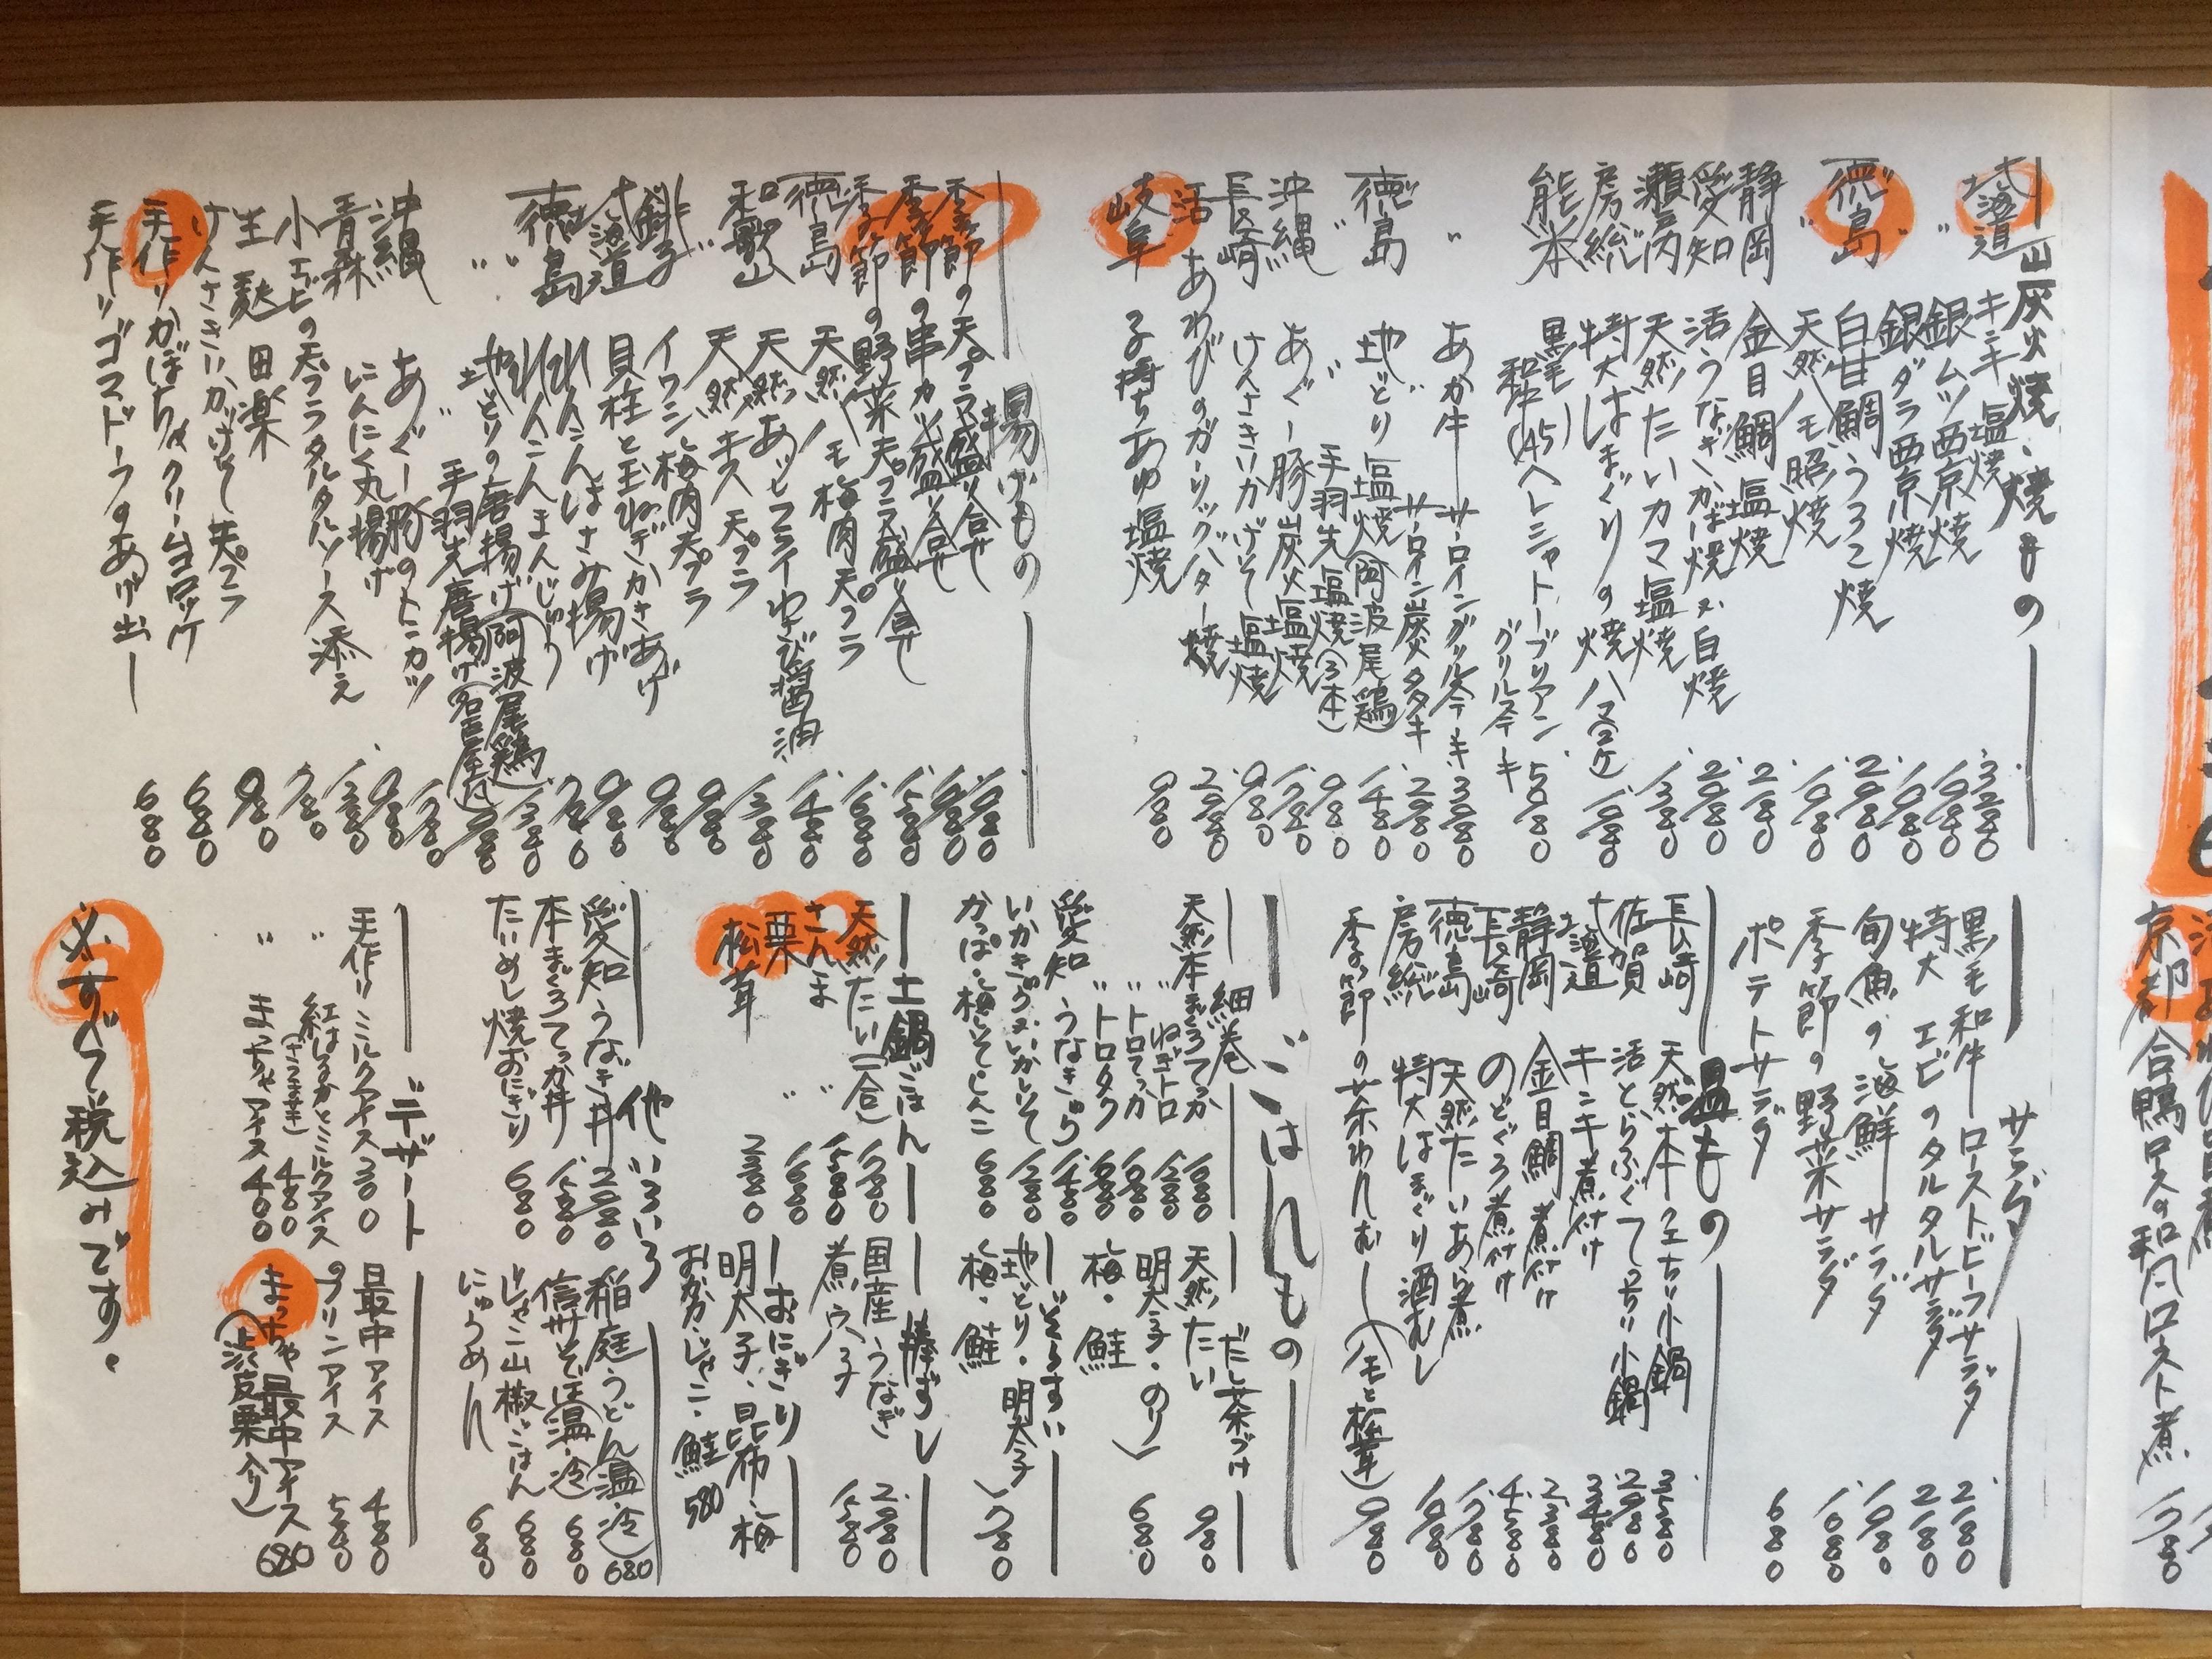 炭火焼・焼もの
北海道 キンキ塩焼 3,280
〃 銀ムツ西京焼 1,980
〃 銀ダラ西京焼 1,980
徳島 白甘鯛うろこ焼 2,980
〃 天然ハモ照焼 1,980
静岡 金目鯛塩焼 2,180
愛知 活うなぎかば焼又は白焼 2,980
瀬戸内 天然たいカマ塩焼 1,380
房総 特大はまぐりの焼ハマ(2ケ) 1,980
熊本 黒毛和牛(A5)ヘレシャトーブリアングリルステーキ 5,980
〃 あか牛サーロイングリルステーキ 3,980
サーロイン炭火タタキ 2,980
徳島 地どり塩焼(阿波尾鶏) 1,480
〃 〃 手羽先塩焼(3本) 980
沖縄 あぐー豚炭火塩焼 1,780
長崎 けんさきいかげそ塩焼 980
活あわびのガーリックバター焼 2,980
岐阜 子持ちあゆ塩焼 980
揚げもの
季節の天プラ盛り合せ 1,980
季節の串カツ盛り合せ 1,980
季節の野菜天プラ盛り合せ 1,580
徳島 天然ハモ梅肉天プラ 1,680
和歌山 天然あじフライわさび醤油 1,480
〃 天然キス天プラ 1,380
銚子 イワシ梅肉天プラ 980
北海道 貝柱と玉ねぎかきあげ 980
徳島 れんこんはさみ揚げ 980
〃 れんこんまんじゅう 780
〃 地どりの唐揚げ(阿波尾鶏) 1,380
〃 手羽先唐揚げ(名古屋風) 980
沖縄 あぐー豚のトンカツ 1,780
青森 にんにく丸揚げ 980
小エビの天プラタルタルソース添え 1,380
生麩田楽 780
けんさきいかげそ天プラ 980
手作りかぼちゃクリームコロッケ 680
手作りゴマドーフのあげ出し 680
サラダ
黒毛和牛ローストビーフサラダ 2,180
特大エビのタルタルサラダ 2,180
旬魚の海鮮サラダ 1,980
季節の野菜サラダ 1,680
ポテトサラダ 680
温もの
長崎 天然本クエちり小鍋 3,580
佐賀 活とらふぐてっちり小鍋 2,980
北海道 キンキ煮付け 3,480
静岡 金目鯛煮付け 2,380
長崎 のどぐろ煮付け 4,580
徳島 天然たいあら煮 1,780
房総 特大はまぐり酒むし 1,980
季節の茶わんむし(ハモと松茸) 980
ごはんもの
細巻
天然本まぐろてっか 1,680
〃 ねぎトロ 1,280
〃 トロてっか 1,980
〃 トロタク 1,680
愛知 うなきゅう 1,480
いかきゅう又はいかしそ 1,280
かっぱ・梅しそ・しんこ 680
だし茶づけ
天然たい 980
明太子・のり
梅・鮭 680
ぞうすい
地どり・明太子
梅・鮭 780
土鍋ごはん
天然たい(一合) 1,780
さんま 1,580
栗 〃 1,680
松茸 〃 2,380
棒ずし
国産うなぎ 2,980
煮穴子 1,580
おにぎり
明太子・昆布・梅
おかか・じゃこ・鮭 580
他いろいろ
愛知 うなぎ丼 2,980
本まぐろてっか丼 1,580
たいめし焼おにぎり 680
稲庭うどん(温・冷) 680
信州そば(温・冷) 680
じゃこ山椒ごはん 680
にゅうめん 680
デザート
手作りミルクアイス 300
〃 紅はるかとミルクアイス(さつまいも) 480
〃 まっちゃアイス 400
最中アイス 480
プリンアイス 580
まっちゃ最中アイス(渋皮栗入り) 680
※すべて税込みです。
京都 合鴨ロースの和風ロースト煮 1,780